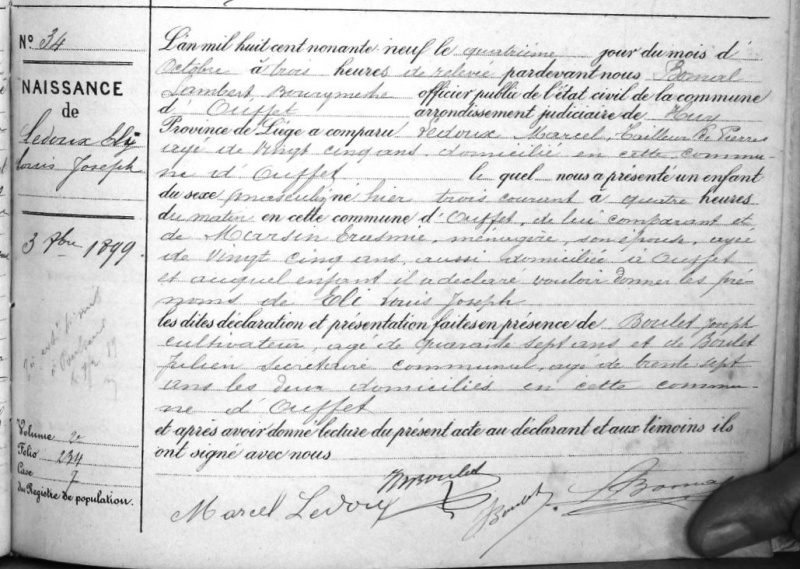 N° 34
NAISSANCE
de
Ledoux Eli
Louis Joseph
3 8bre 1899.
Volume 2
Folio 234
Case 7
du Registre de population.
L'an mil huit cent nonante neuf le quatrième jour du mois d'
Octobre à trois heures de relevée pardevant nous
Lambert, Bourgmestre officier public de l'état civil de la commune
d' Ouffet arrondissement judiciaire de Huy
Province de Liége a comparu Ledoux Marcel, Tailleur de Pierres
agé de vingt cinq ans, domicilié en cette commu-
ne d'Ouffet le quel nous a présenté un enfant
du sexe masculin né hier trois courant à quatre heures
du matin en cette commune d'Ouffet, de lui comparant et
de Marsin Erasmie, ménagère, son épouse, agée
de vingt cinq ans, aussi domiciliée à Ouffet
et auquel enfant il a déclaré vouloir donner les pré-
noms de Eli Louis Joseph
les dites déclaration et présentation faites en présence de Boulet Joseph
cultivateur, agé de quarante sept ans et de Boulet
Julien Secrétaire communal, agé de trente sept
ans les deux domiciliés en cette commu-
ne d'Ouffet
et après avoir donné lecture du présent acte au déclarant et aux témoins ils
ont signé avec nous
Boulet
Marcel Ledoux JBoulet